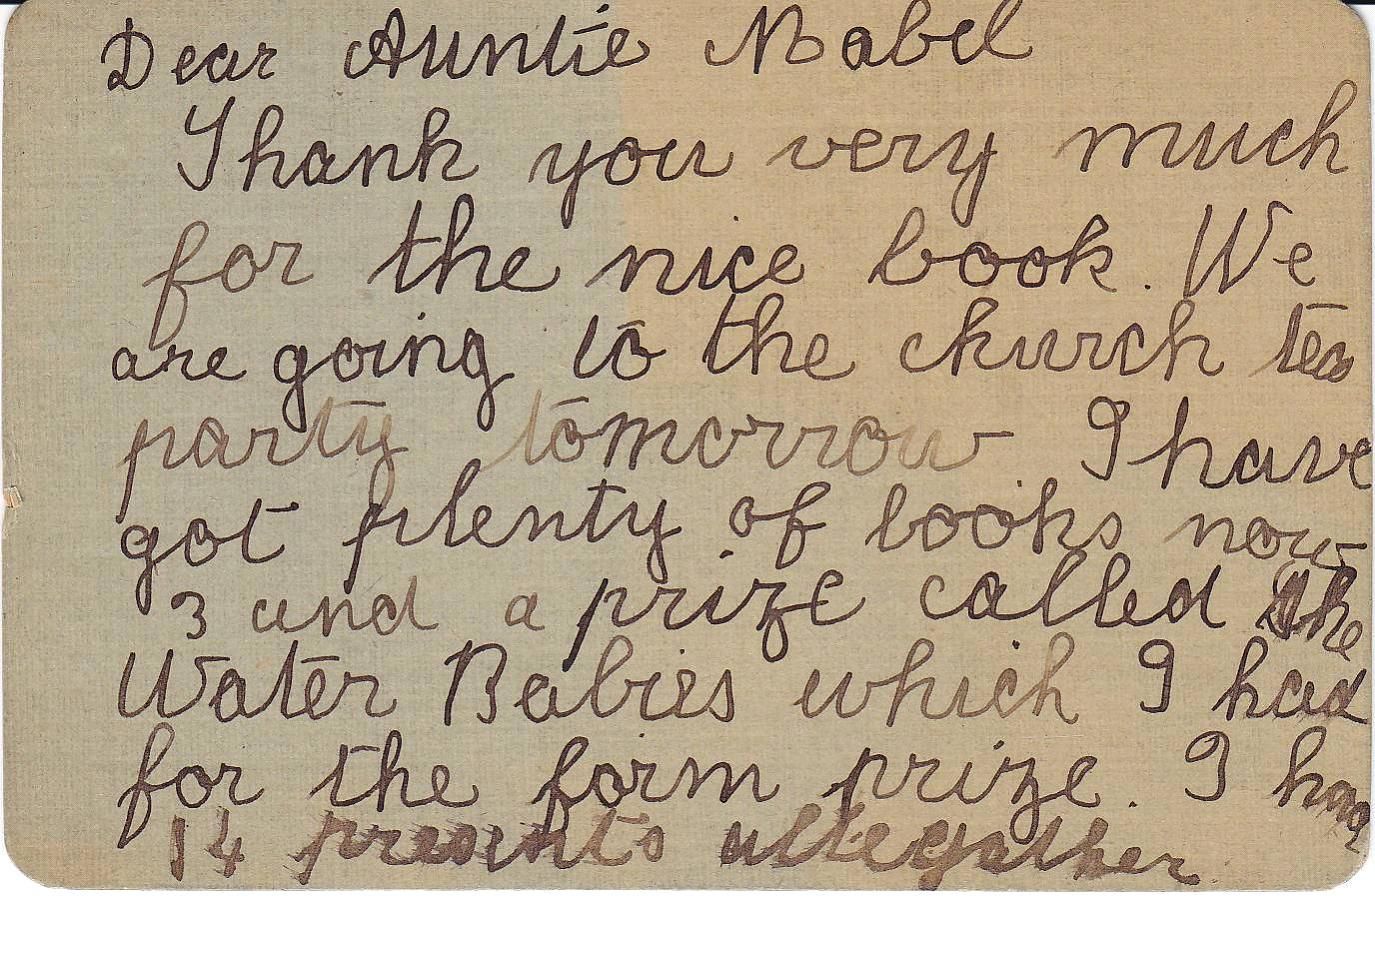 Dear Auntie Mabel
Thank you very much
for the nice book. We
are going to the church tea
party tomorrow I have
got plenty of books now
3 and a prize called The
Water Babies which I had
for the form prize. I
14 presents altegather